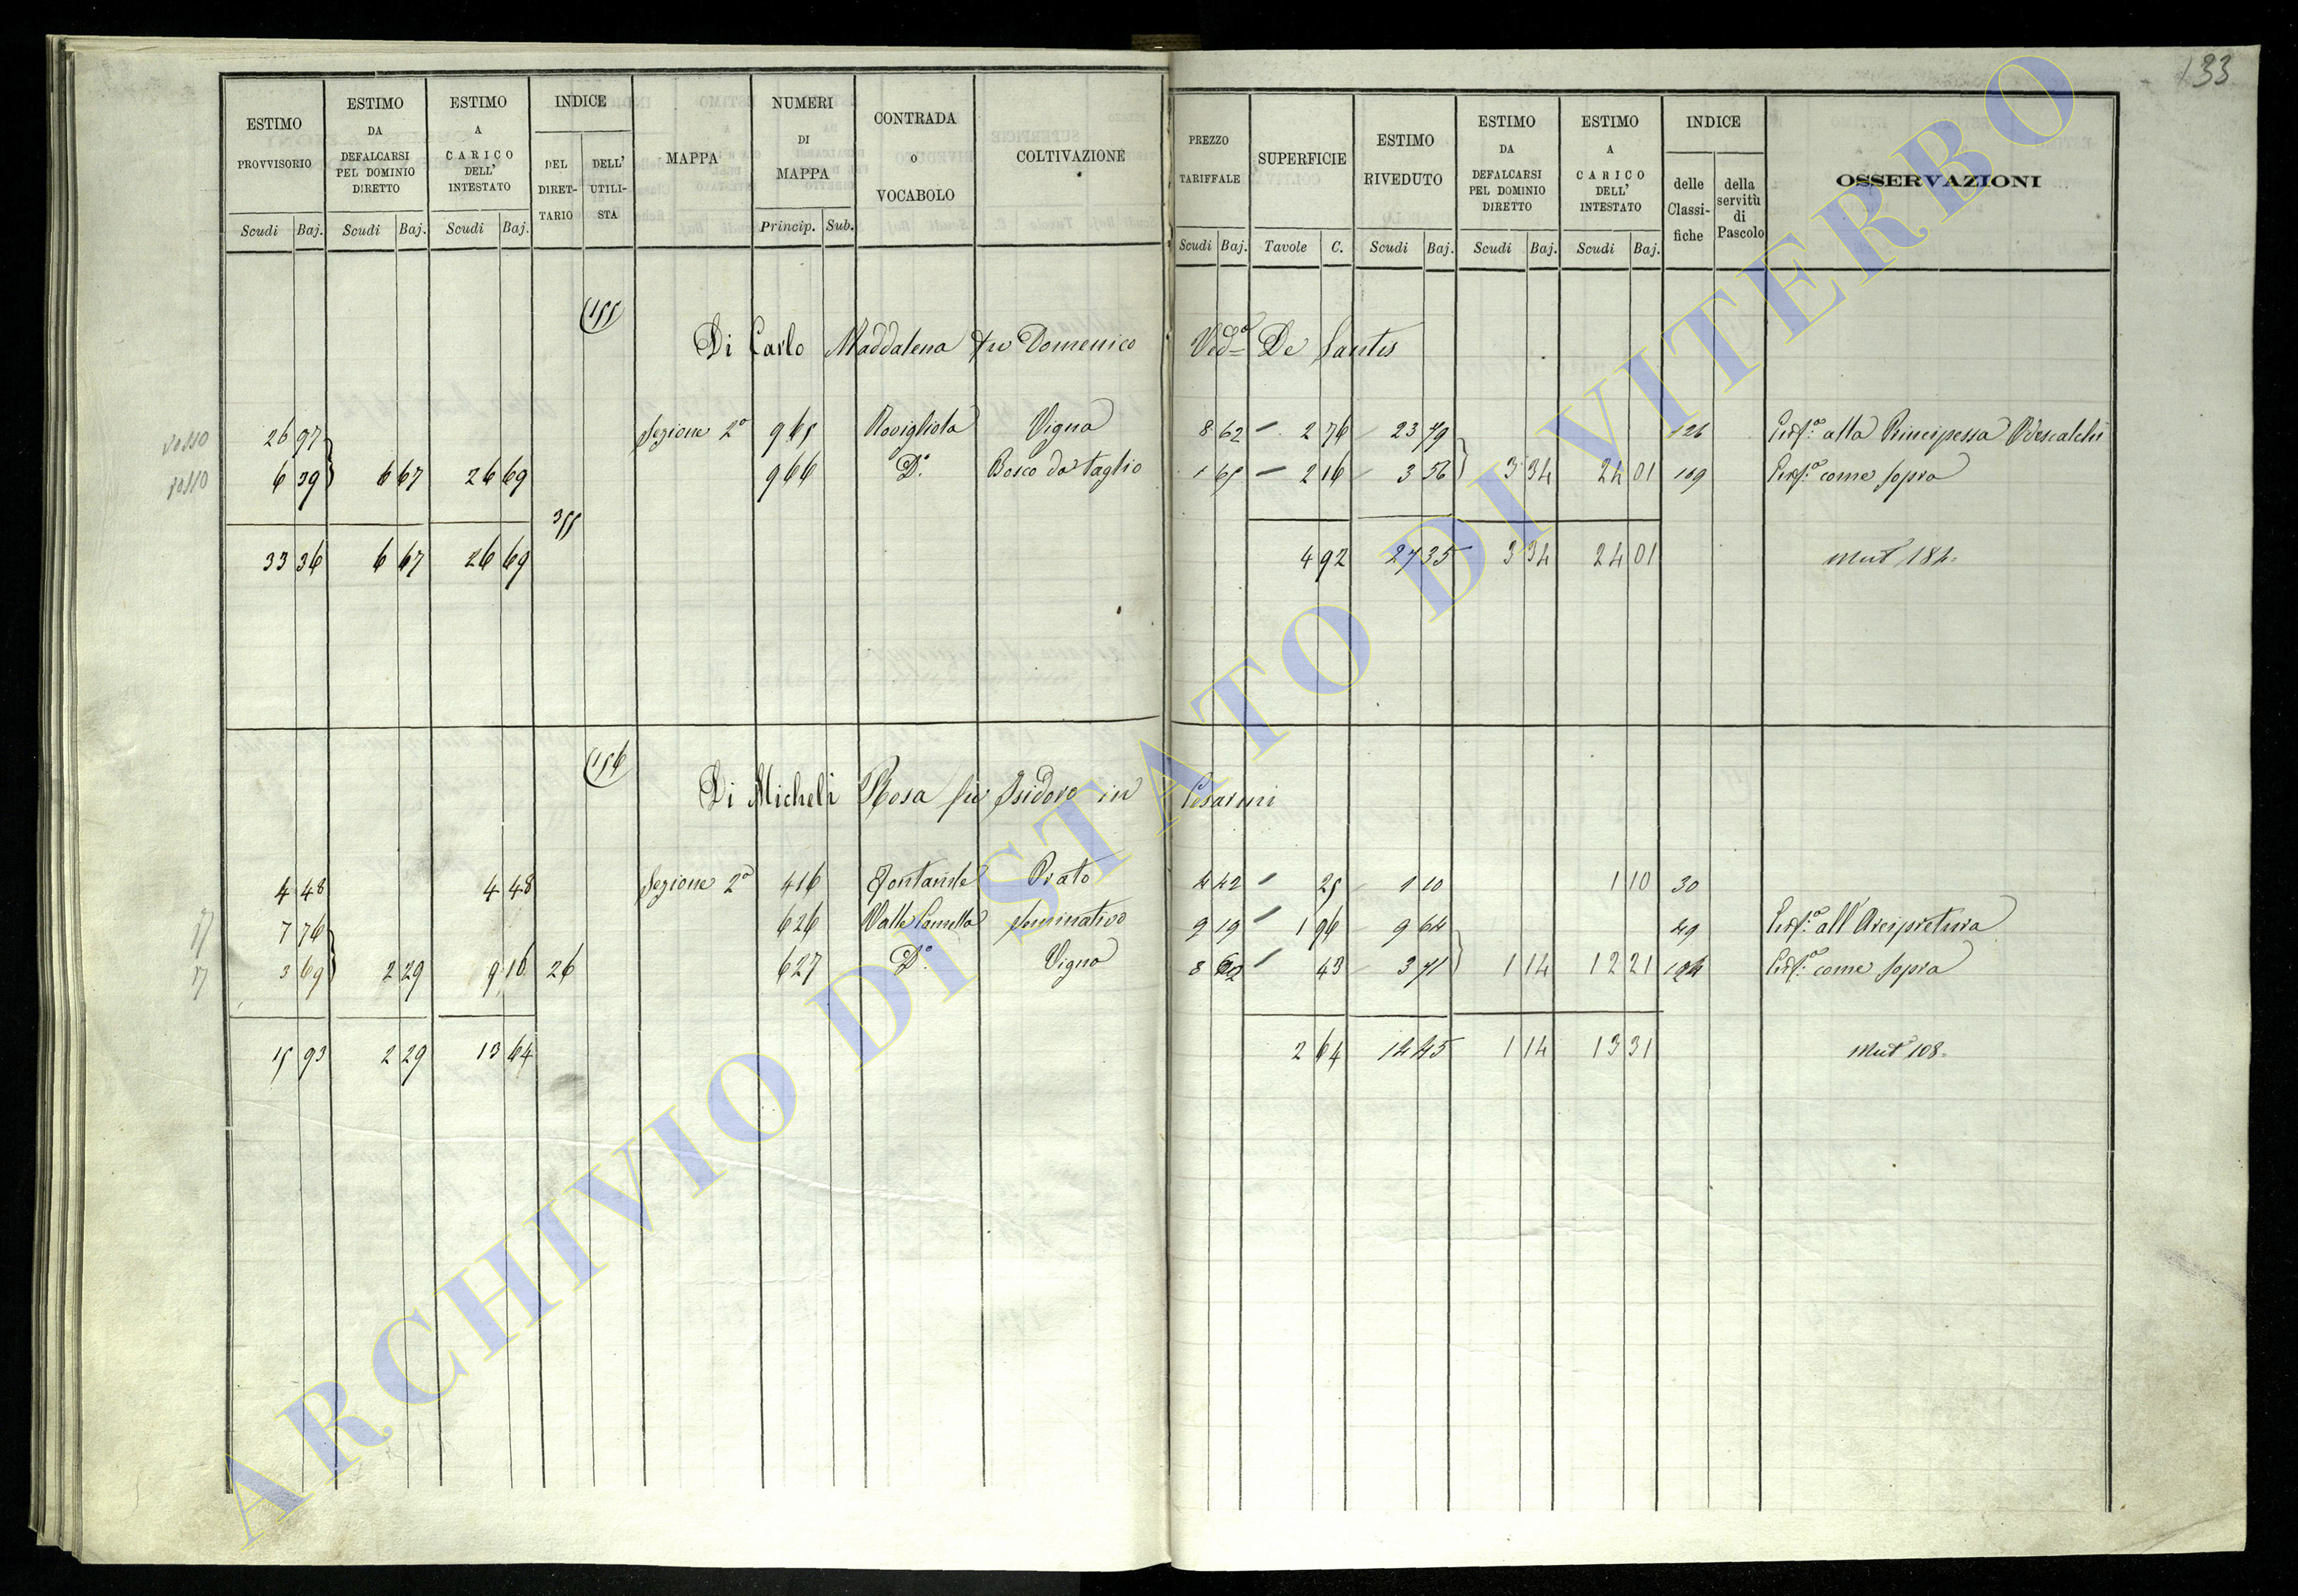 133
ESTIMO PROVVISORIO Scudi Baj.
ESTIMO DA DEFALCARSI PEL DOMINIO DIRETTO Scudi Baj.
ESTIMO A CARICO DELL' INTESTATO Scudi Baj.
INDICE DEL DIRETTARIO DELL' UTILISTA
MAPPA
NUMERI DI MAPPA Princip. Sub.
CONTRADA O VOCABOLO
COLTIVAZIONE
PREZZO TARIFFALE Scudi Baj.
SUPERFICIE Tavole C.
ESTIMO RIVEDUTO Scudi Baj.
ESTIMO DA DEFALCARSI PEL DOMINIO DIRETTO Scudi Baj.
ESTIMO A CARICO DELL' INTESTATO Scudi Baj.
INDICE delle Classifiche della servitù di Pascolo
OSSERVAZIONI
155
Di Carlo Maddalena fu Domenico Ved.a De Santis
rosso 26 97 Sezione 2a 965 Rovigliola Vigna 8 62 2 76 23 79 126 Enf.a alla Principessa Odescalchi
rosso 6 39 6 67 26 69 966 D.o Bosco da taglio 1 65 2 16 3 56 3 34 24 01 109 Enf.a come sopra
355
33 36 6 67 26 69 4 92 27 35 3 34 24 01 Mut 184
156
Di Micheli Rosa fu Isidoro in Cesarini
4 48 4 48 Sezione 2a 416 Fontanile Prato 4 42 25 1 10 1 10 30
7 76 626 Valle Cannella Seminativo 9 19 1 96 9 64 49 Enf.a all'Arcipretura
3 69 2 29 9 16 26 627 D.o Vigna 8 62 43 3 71 1 14 12 21 124 Enf.a come sopra
15 93 2 29 13 64 2 64 14 45 1 14 13 31 Mut 108
ARCHIVIO DI STATO DI VITERBO